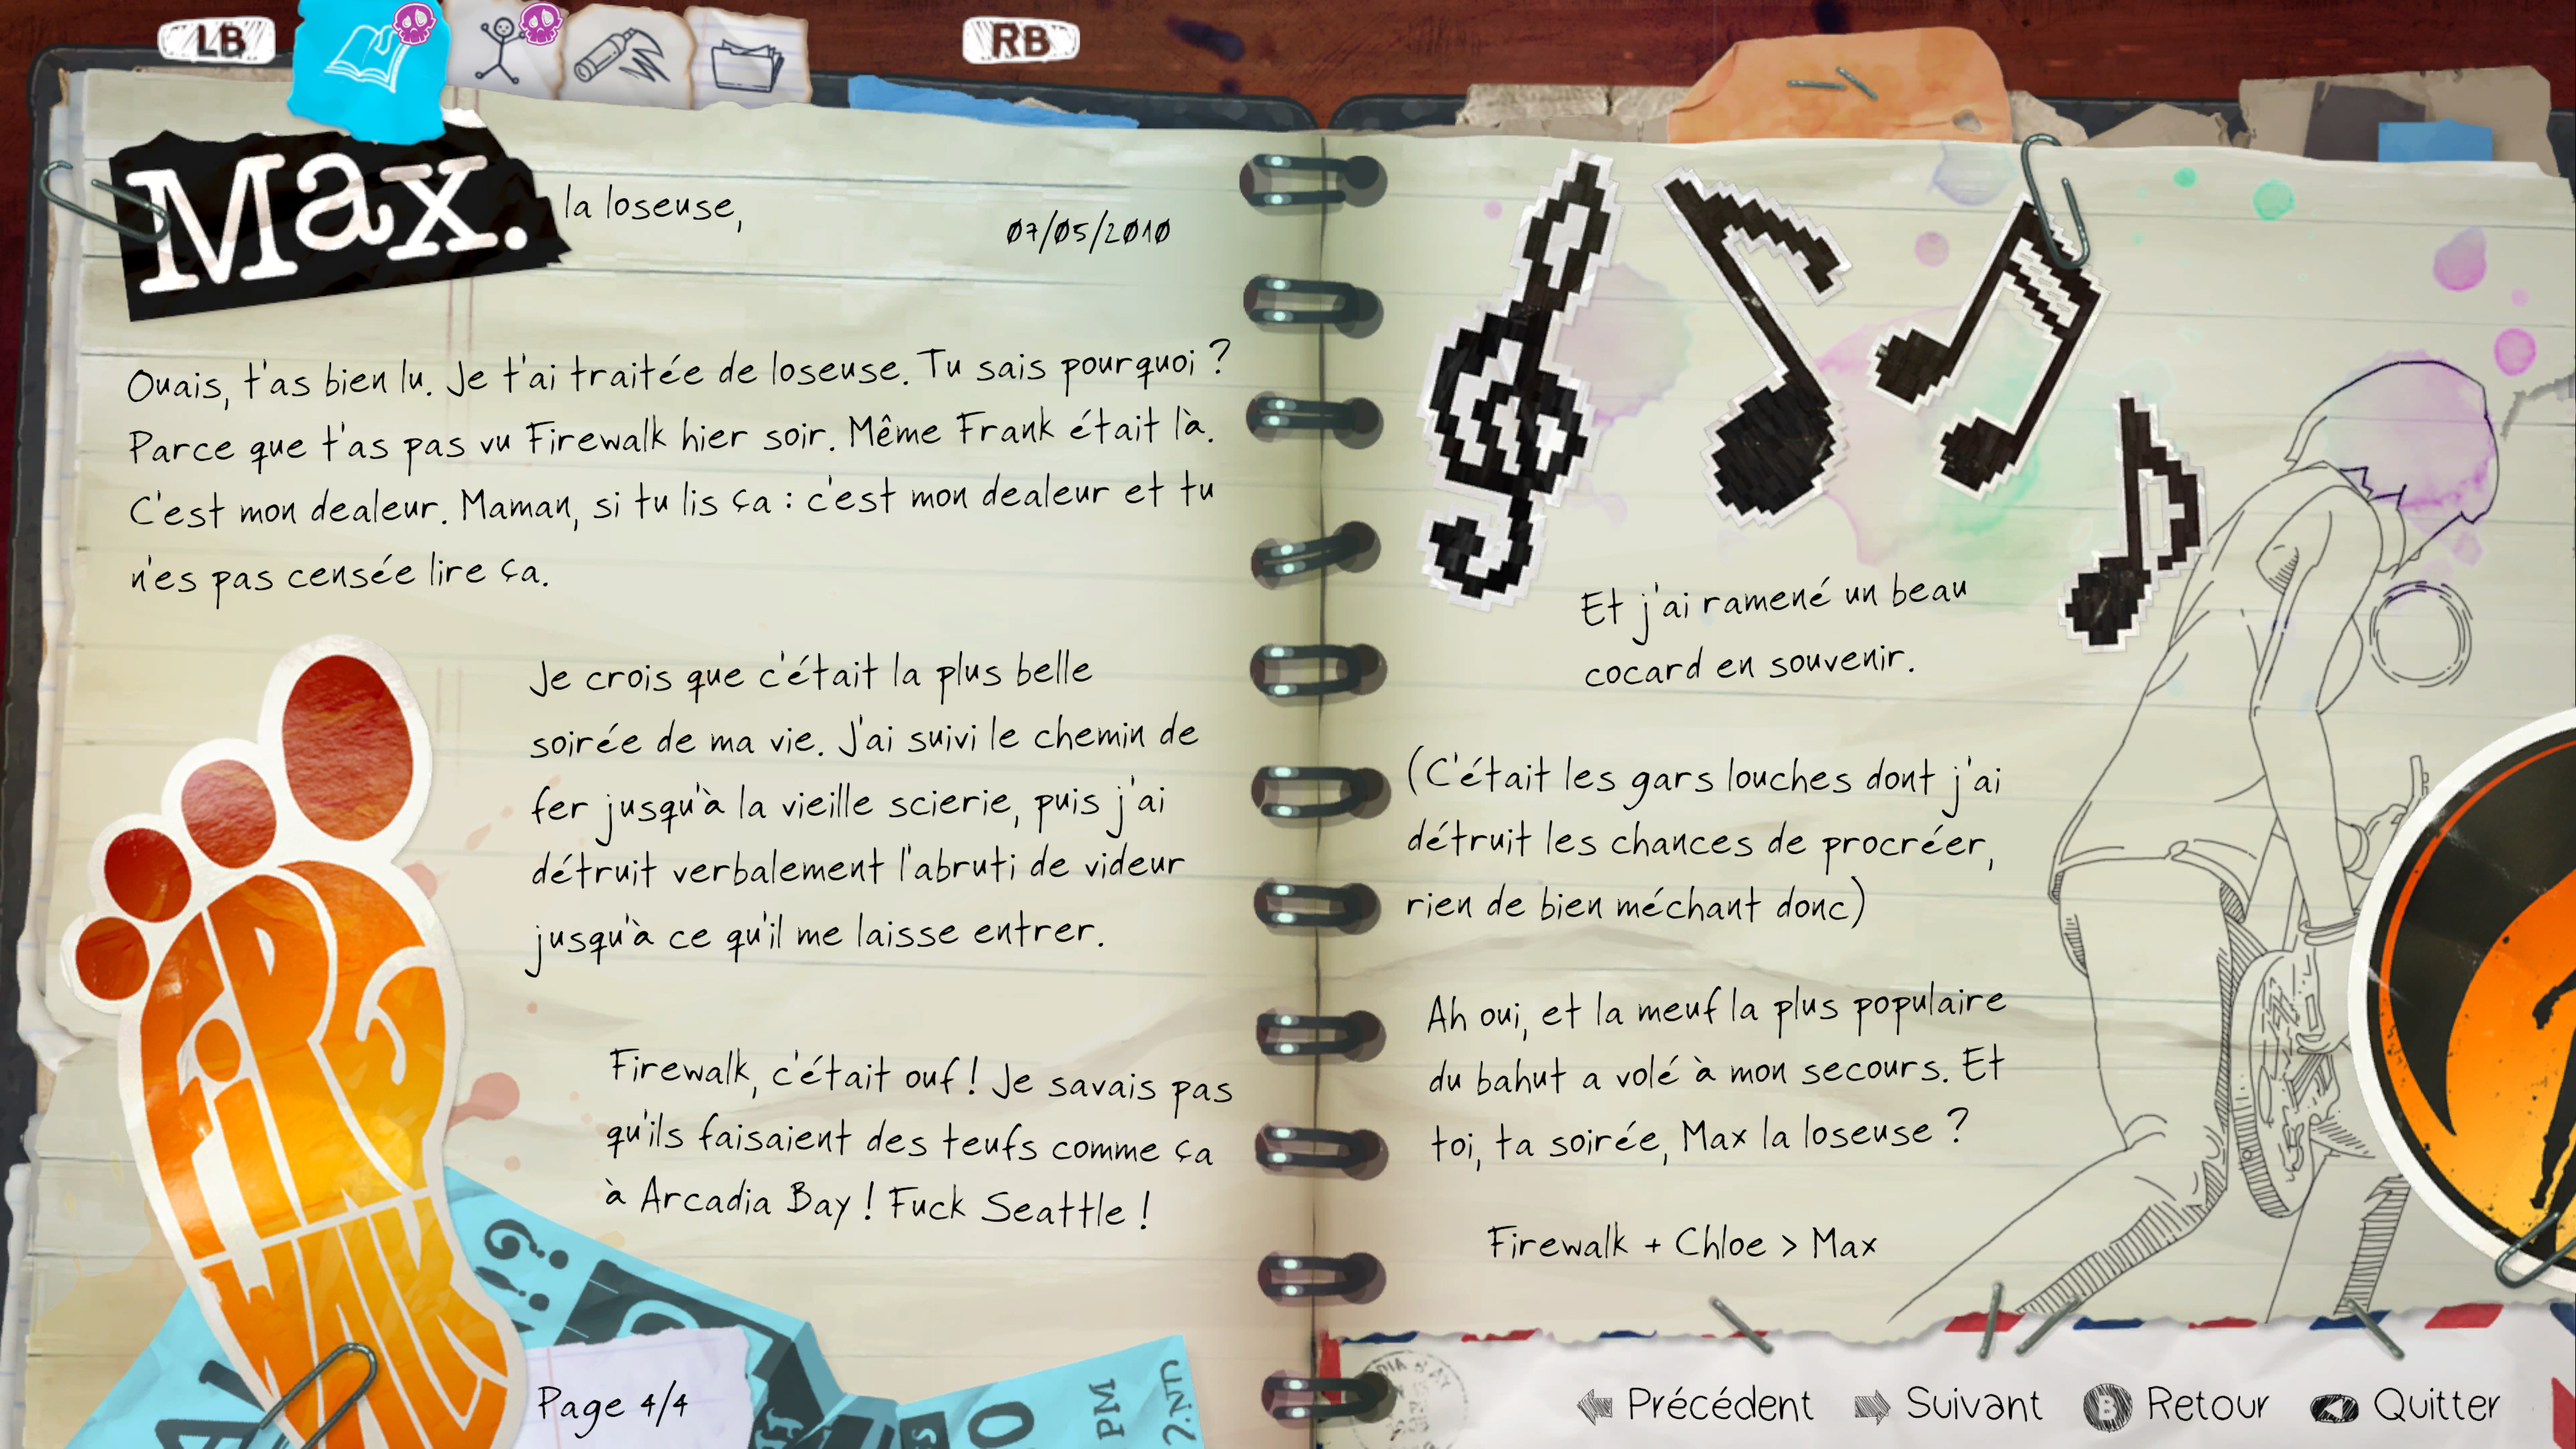 LB
RB
Max.
la loseuse,
07/05/2010
Ouais, t'as bien lu. Je t'ai traitée de loseuse. Tu sais pourquoi ?
Parce que t'as pas vu Firewalk hier soir. Même Frank était là.
C'est mon dealeur. Maman, si tu lis ça : c'est mon dealeur et tu
n'es pas censée lire ça.
Je crois que c'était la plus belle
soirée de ma vie. J'ai suivi le chemin de
fer jusqu'à la vieille scierie, puis j'ai
détruit verbalement l'abruti de videur
jusqu'à ce qu'il me laisse entrer.
Firewalk, c'était ouf ! Je savais pas
qu'ils faisaient des teufs comme ça
à Arcadia Bay ! Fuck Seattle !
FiRE
WALK
PM
Page 4/4
Et j'ai ramené un beau
cocard en souvenir.
(C'était les gars louches dont j'ai
détruit les chances de procréer,
rien de bien méchant donc)
Ah oui, et la meuf la plus populaire
du bahut a volé à mon secours. Et
toi, ta soirée, Max la loseuse ?
Firewalk + Chloe > Max
Précédent
Suivant
B
Retour
Quitter